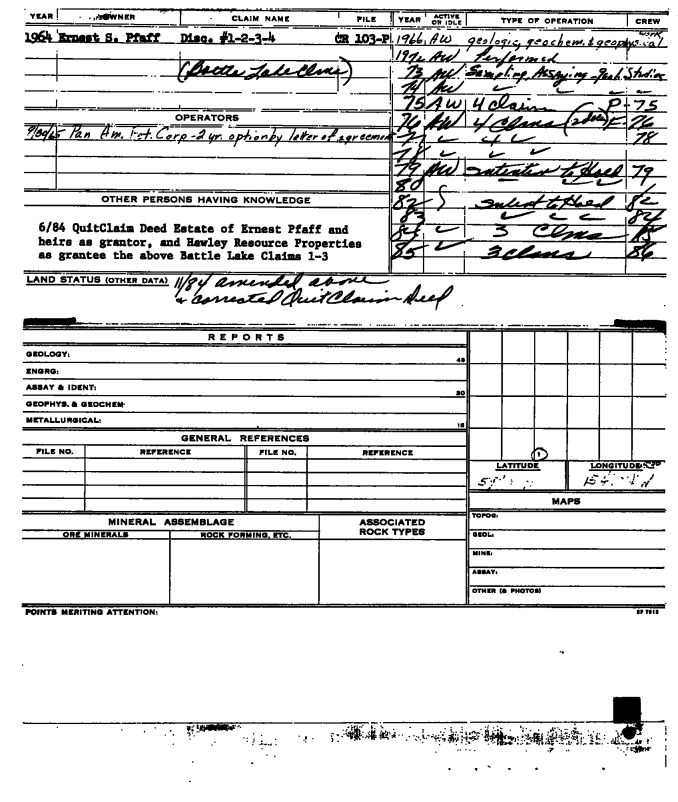 YEAR OWNER CLAIM NAME FILE YEAR ACTIVE OR IDLE TYPE OF OPERATION CREW
1964 Ernest S. Pfaff Disc. #1-2-3-4 CR 103-P
(Battle Lake Clms)
1966 AW geologic, geochem. & geophysical work
Performed
73 AW Sampling, Assaying - geol. Studies
74 AW
75 AW 4 claim P-75
76 AW 4 Clms F-76
77 4 78
78
79 AW intention to Hold 79
80
82 intent to Hold 82
83 84
84 3 Clms 85
85 3 clms 86
OPERATORS
9/30/65 Pan Am. Pet. Corp - 2 yr. option by letter of agreement
OTHER PERSONS HAVING KNOWLEDGE
6/84 QuitClaim Deed Estate of Ernest Pfaff and
heirs as grantor, and Hawley Resource Properties
as grantee the above Battle Lake Claims 1-3
LAND STATUS (OTHER DATA) 11/84 amended above
& corrected Quit Claim Deed
REPORTS
GEOLOGY: 45
ENGRG:
ASSAY & IDENT: 30
GEOPHYS. & GEOCHEM:
METALLURGICAL: 15
GENERAL REFERENCES
FILE NO. REFERENCE FILE NO. REFERENCE
1
LATITUDE LONGITUDE
MAPS
TOPOG:
GEOL:
MINE:
ASSAY:
OTHER (& PHOTOS)
MINERAL ASSEMBLAGE ASSOCIATED ROCK TYPES
ORE MINERALS ROCK FORMING, ETC.
POINTS MERITING ATTENTION:
SP 7913